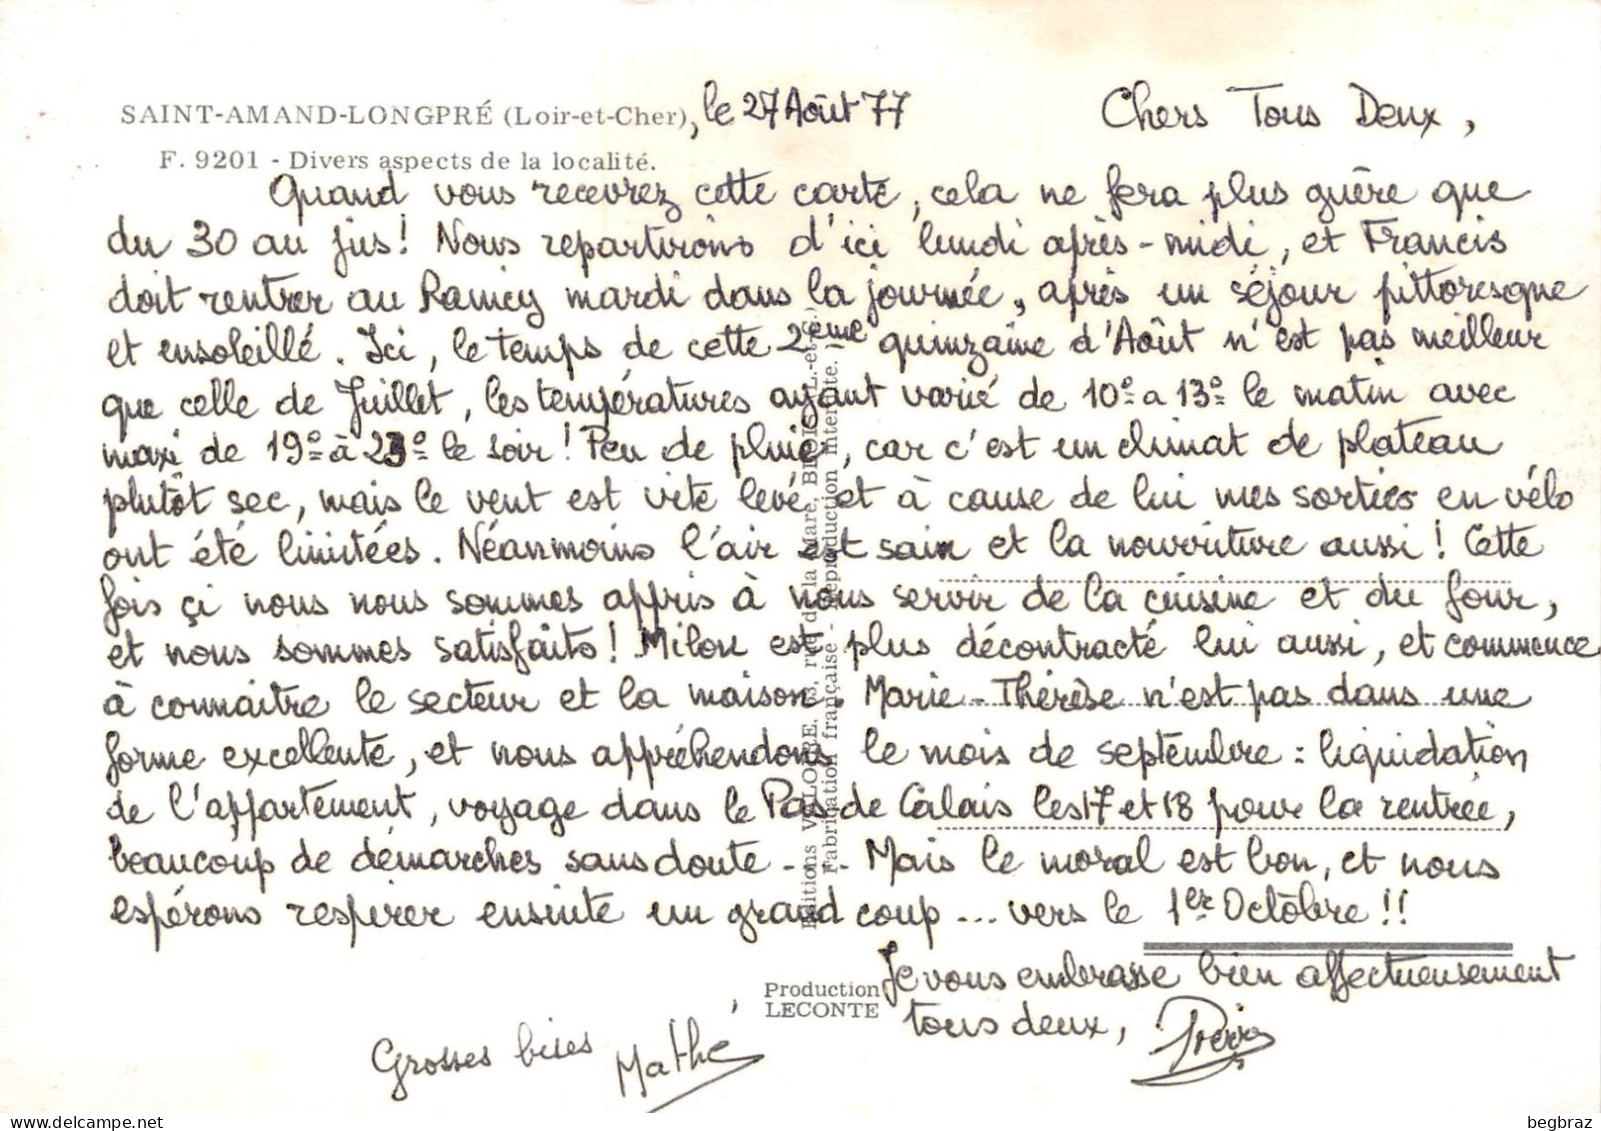 SAINT-AMAND-LONGPRÉ (Loir-et-Cher), le 27 Août 77
F. 9201 - Divers aspects de la localité.
Chers Tous Deux,
Quand vous recevrez cette carte, cela ne fera plus guère que
du 30 au jus! Nous repartirons d'ici lundi après-midi, et Francis
doit rentrer au Raincy mardi dans la journée, après un séjour pittoresque
et ensoleillé. Ici, le temps de cette 2ème quinzaine d'Août n'est pas meilleur
que celle de Juillet, les températures ayant varié de 10° à 13° le matin avec
maxi de 19° à 23° le soir! Peu de pluie, car c'est un climat de plateau
plutôt sec, mais le vent est vite levé et à cause de lui mes sorties en vélo
ont été limitées. Néanmoins l'air est sain et la nourriture aussi! Cette
fois çi nous nous sommes appris à nous servir de la cuisine et du four,
et nous sommes satisfaits! Milou est plus décontracté lui aussi, et commence
à connaitre le secteur et la maison. Marie-Thérèse n'est pas dans une
forme excellente, et nous appréhendons le mois de septembre: liquidation
de l'appartement, voyage dans le Pas de Calais les 17 et 18 pour la rentrée,
beaucoup de démarches sans doute... Mais le moral est bon, et nous
espérons respirer ensuite un grand coup... vers le 1er Octobre!!
Je vous embrasse bien affectueusement
tous deux,
Grosses bises Mathé
Production
LECONTE
Editions VALOIRE, rue de la Mare, BLOIS (L.-et-C.)
Fabrication française - Reproduction interdite.
begbraz